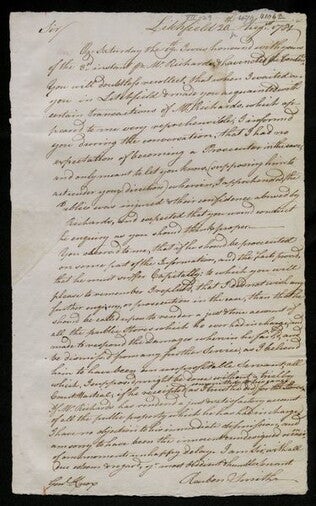 Litchfield 20 Augt. 1781
Sir
By Saturday the I was honored with yours
of the 3d. instant Mr. Richards
You will doubtless recollect, that when I waited on
you in Litchfield & made you acquainted with
certain transactions of Mr. Richards, which ap-
peared to me very reprehensible; I informed
you during the conversation, that I had no
expectation of becoming a Prosecutor in the case,
and only meant to let you know, supposing him to
act under your direction, wherein I apprehended the
Public was injured & their confidence abused by
Richards, and expected that you would conduct
the enquiry as you should think proper.
You assured me, that if he should be prosecuted
on some part of the Information, and the facts proved,
that he must suffer Capitally; to which you will
please to remember I replied, that I did not wish any
further enquiry or prosecution in the case, than that he
should be called upon to render a just & true account of
all the public Stores which he ever had in charge, and
made to respond the damages wherein he failed, and
be dismissed from any further Service, as I believed
him to have been an unprofitable Servant; all
which, I supposed might be done without a tedious
Court Martial
If Mr. Richards has rendered a satisfactory account
of all the public property which he has had in charge,
I have no objection to his immediate dismission, and
am sorry to have been the innocent & undesigned means
of an unhappy delay. I am Sir with all
due esteem & regard, yr. most Obedient Humble Servant
Reuben Smith